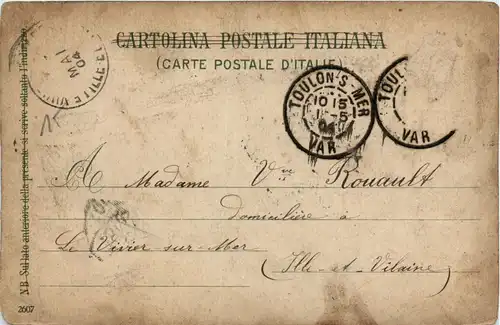 CARTOLINA POSTALE ITALIANA
(CARTE POSTALE D'ITALIE)
MAI
04
TOULON-S-MER
10 15
VAR
TOUL
VAR
A Madame Vve Rouault
domiciliée à
Le Vivier-sur-Mer
(Ille-et-Vilaine)
NB. Sul lato anteriore della presente si scrive soltanto l'indirizzo
2607